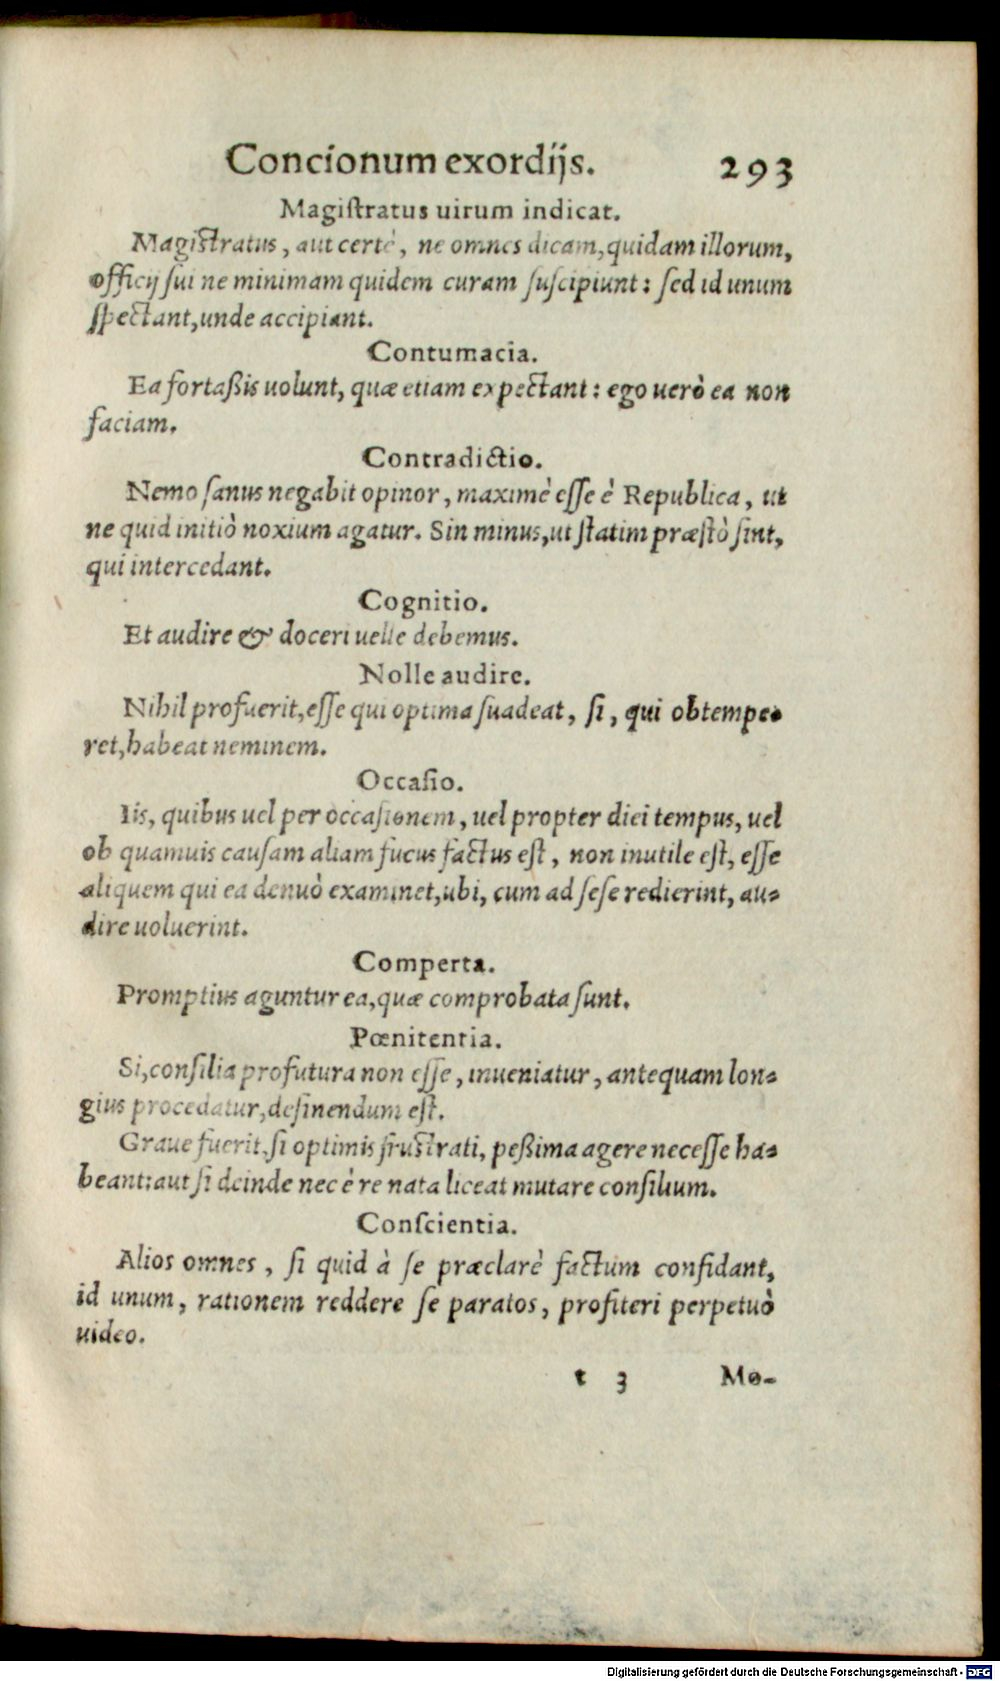 Concionum exordijs. 293
Magiſtratus uirum indicat.
Magiſtratus, aut certè, ne omnes dicam, quidam illorum,
officij ſui ne minimam quidem curam ſuſcipiunt: ſed id unum
ſpectant, unde accipiant.
Contumacia.
Ea fortaßis uolunt, quæ etiam expectant: ego uerò ea non
faciam.
Contradictio.
Nemo ſanus negabit opinor, maximè eſſe è Republica, ut
ne quid initiò noxium agatur. Sin minus, ut ſtatim præſtò ſint,
qui intercedant.
Cognitio.
Et audire & doceri uelle debemus.
Nolle audire.
Nihil profuerit, eſſe qui optima ſuadeat, ſi, qui obtempe-
ret, habeat neminem.
Occaſio.
Iis, quibus uel per occaſionem, uel propter diei tempus, uel
ob quamuis cauſam aliam fucus factus eſt, non inutile eſt, eſſe
aliquem qui ea denuò examinet, ubi, cum ad ſeſe redierint, au-
dire uoluerint.
Comperta.
Promptius aguntur ea, quæ comprobata ſunt.
Pœnitentia.
Si, conſilia profutura non eſſe, inueniatur, antequam lon-
gius procedatur, deſinendum eſt.
Graue fuerit, ſi optimis fruſtrati, peßima agere neceſſe ha-
beant: aut ſi deinde nec è re nata liceat mutare conſilium.
Conſcientia.
Alios omnes, ſi quid à ſe præclarè factum confidant,
id unum, rationem reddere ſe paratos, profiteri perpetuò
uideo.
t 3 Mo-
Digitalisierung gefördert durch die Deutsche Forschungsgemeinschaft - DFG